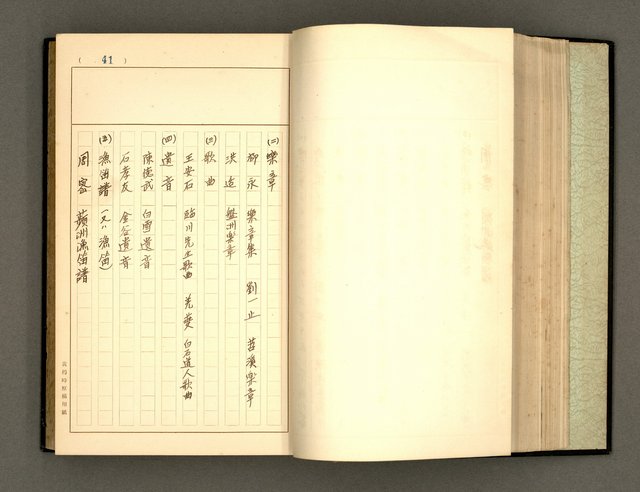 ( 41 )
(二) 樂章
柳永 樂章集 劉一止 苕溪樂章
洪适 盤洲樂章
(三) 歌曲
王安石 臨川先生歌曲 姜夔 白石道人歌曲
(四) 遺音
陳德武 白雪遺音
石孝友 金谷遺音
(五) 漁笛譜 (又八漁笛)
周密 蘋洲漁笛譜